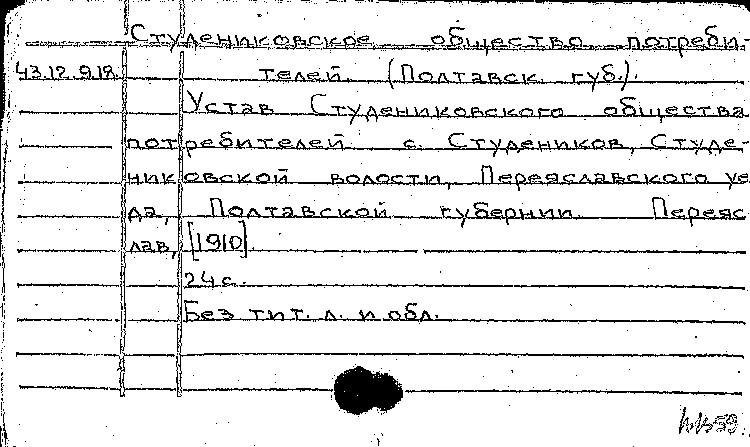 Студениковское общество потреби-
43.12.9.18. телей. (Полтавск. губ.).
Устав Студениковского общества
потребителей с. Студеников, Студе-
никовской волости, Переяславского уе
да, Полтавской губернии. Переяс
лав, [1910].
24 с.
Без тит. л. и обл.